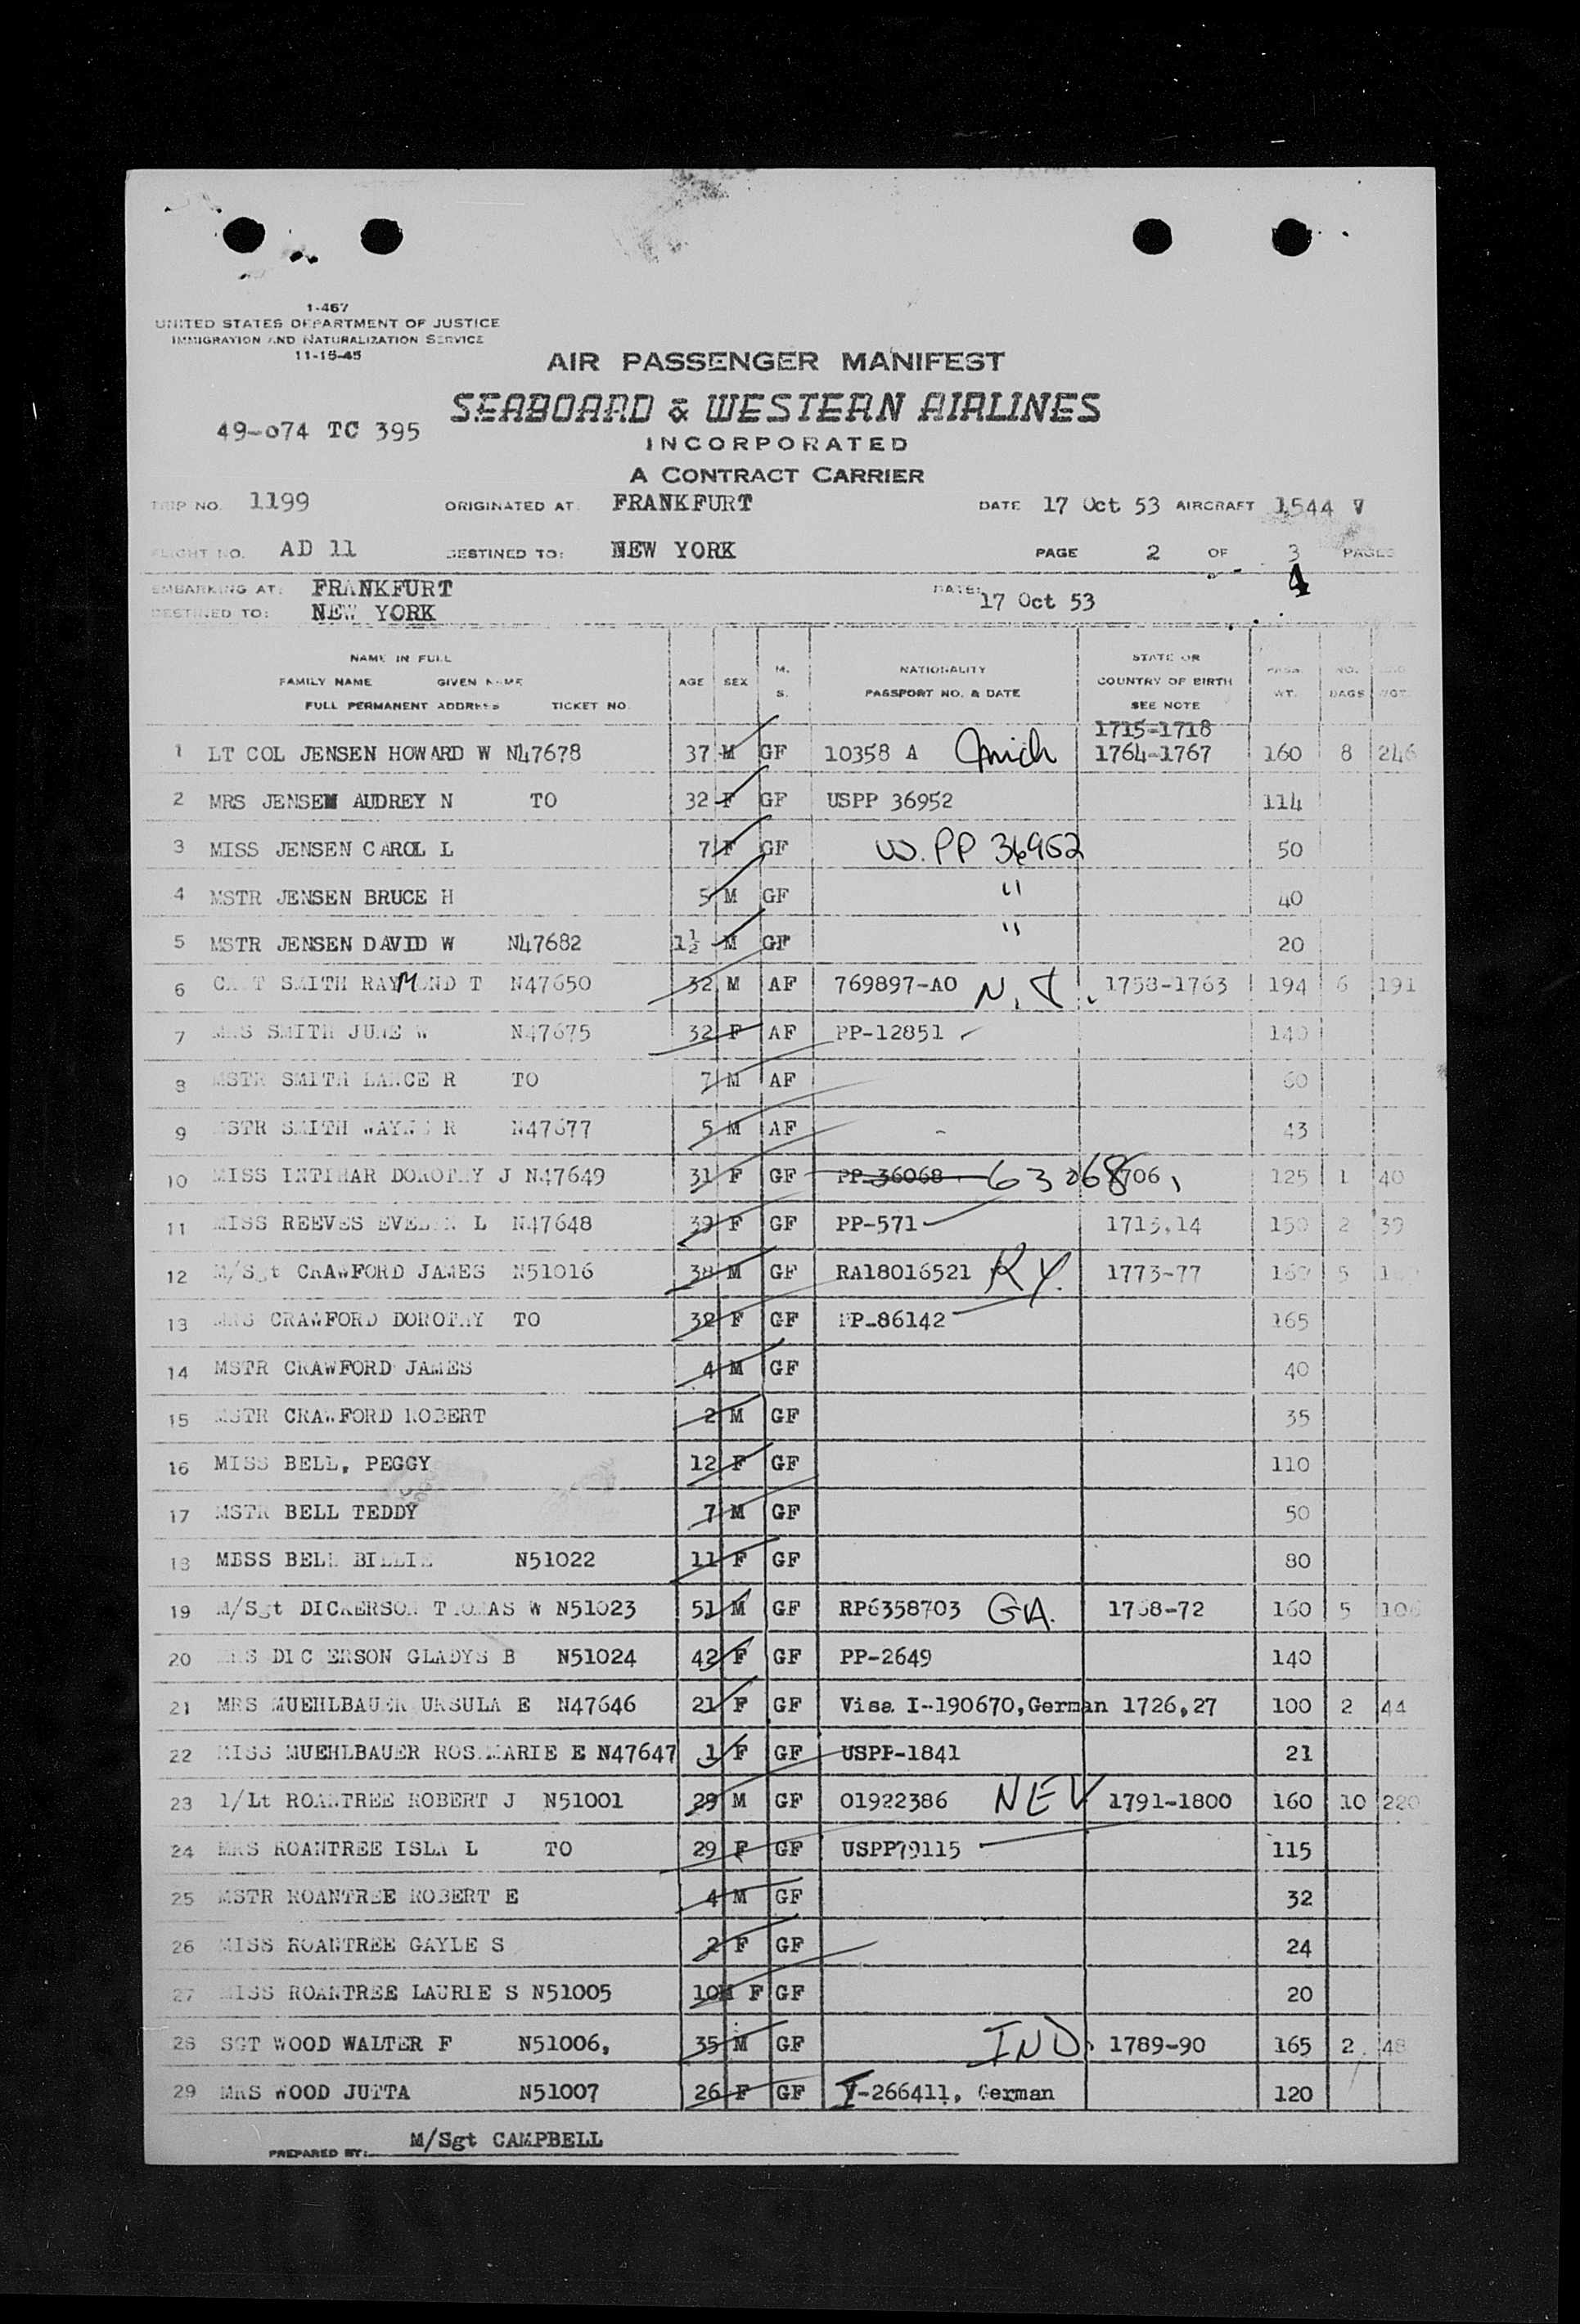 1-467
UNITED STATES DEPARTMENT OF JUSTICE
IMMIGRATION AND NATURALIZATION SERVICE
11-15-45
AIR PASSENGER MANIFEST
SEABOARD & WESTERN AIRLINES
49-074 TC 395
INCORPORATED
A CONTRACT CARRIER
TRIP NO. 1199 ORIGINATED AT FRANKFURT DATE 17 Oct 53 AIRCRAFT 1544 V
FLIGHT NO. AD 11 DESTINED TO: NEW YORK PAGE 2 OF 3 PAGES
4
EMBARKING AT: FRANKFURT DATE: 17 Oct 53
DESTINED TO: NEW YORK
NAME IN FULL M. NATIONALITY STATE OR PASS. NO.
FAMILY NAME GIVEN NAME AGE SEX S. PASSPORT NO. & DATE COUNTRY OF BIRTH WT. BAGS WGT.
FULL PERMANENT ADDRESS TICKET NO. SEE NOTE
1715-1718
1 LT COL JENSEN HOWARD W N47678 37 M GF 10358 A Mich 1764-1767 160 8 246
2 MRS JENSEN AUDREY N TO 32 F GF USPP 36952 114
3 MISS JENSEN CAROL L 7 F GF W. PP 36952 50
4 MSTR JENSEN BRUCE H 5 M GF " 40
5 MSTR JENSEN DAVID W N47682 1½ M GF " 20
6 CAPT SMITH RAYMOND T N47650 32 M AF 769897-AO N.J. 1758-1763 194 6 191
7 MRS SMITH JUNE W N47675 32 F AF PP-12851 140
8 MSTR SMITH LANCE R TO 7 M AF 60
9 MSTR SMITH WAYNE R N47677 5 M AF 43
10 MISS INTIHAR DOROTHY J N47649 31 F GF PP 36068 63068 706, 125 1 40
11 MISS REEVES EVELYN L N47648 39 F GF PP-571 1713,14 150 2 39
12 M/Sgt CRAWFORD JAMES N51016 38 M GF RA18016521 KY. 1773-77 160 5
13 MRS CRAWFORD DOROTHY TO 32 F GF PP-86142 165
14 MSTR CRAWFORD JAMES 4 M GF 40
15 MSTR CRAWFORD ROBERT 2 M GF 35
16 MISS BELL, PEGGY 12 F GF 110
17 MSTR BELL TEDDY 7 M GF 50
18 MBSS BELL BILLIE N51022 11 F GF 80
19 M/Sgt DICKERSON THOMAS W N51023 51 M GF RP6358703 GA. 1768-72 160 5 106
20 MRS DICKERSON GLADYS B N51024 42 F GF PP-2649 140
21 MRS MUEHLBAUER URSULA E N47646 21 F GF Visa I-190670,German 1726,27 100 2 44
22 MISS MUEHLBAUER ROSEMARIE E N47647 1 F GF USPP-1841 21
23 1/Lt ROANTREE ROBERT J N51001 29 M GF 01922386 NEV 1791-1800 160 10 220
24 MRS ROANTREE ISLA L TO 29 F GF USPP79115 115
25 MSTR ROANTREE ROBERT E 4 M GF 32
26 MISS ROANTREE GAYLE S 2 F GF 24
27 MISS ROANTREE LAURIE S N51005 10M F GF 20
28 SGT WOOD WALTER F N51006, 35 M GF IND. 1789-90 165 2 48
29 MRS WOOD JUTTA N51007 26 F GF V-266411, German 120
PREPARED BY: M/Sgt CAMPBELL